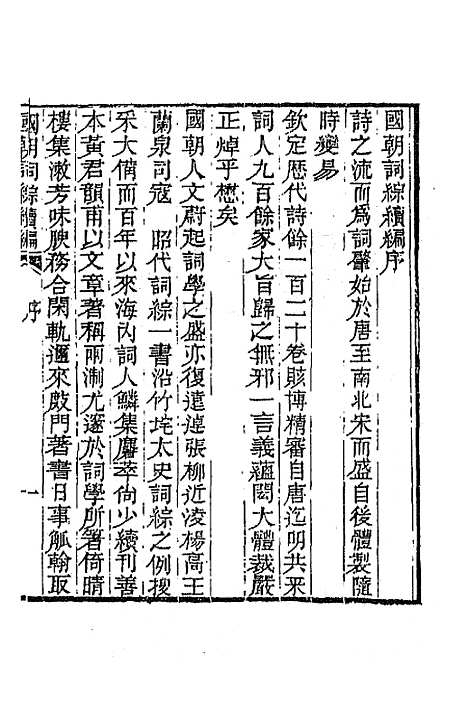 國朝詞綜續編序
詩之流而爲詞肇始於唐至南北宋而盛自後體製隨
時變易
欽定歷代詩餘一百二十卷賅博精審自唐迄明共采
詞人九百餘家大旨歸之無邪一言義蘊閎大體裁嚴
正焯乎懋矣
國朝人文蔚起詞學之盛亦復遠追張柳近凌楊高王
蘭泉司寇 昭代詞綜一書沿竹垞太史詞綜之例搜
采大備而百年以來海內詞人鱗集麕萃尙少續刊善
本黃君韻甫以文章著稱兩淛尤邃於詞學所著倚晴
樓集漱芳味腴務合閑軌邇來戲門著書日事觚翰取
國朝詞綜續編 序 一